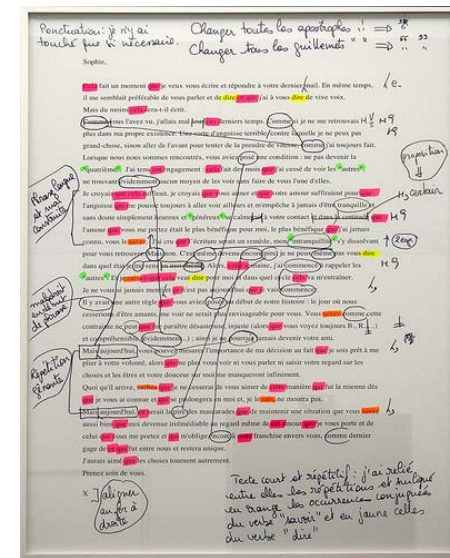 Ponctuation : je n'y ai
touché que si nécessaire.
Changer toutes les apostrophes
Changer tous les guillemets
Sophie,
Cela fait un moment que je veux vous écrire et répondre à votre dernier mail. En même temps,
il me semblait préférable de vous parler et de dire ce que j'ai à vous dire de vive voix.
Mais du moins cela sera-t-il écrit.
Comme vous l'avez vu, j'allais mal tous ces derniers temps. Comme si je ne me retrouvais
plus dans ma propre existence. Une sorte d'angoisse terrible, contre laquelle je ne peux pas
grand-chose, sinon aller de l'avant pour tenter de la prendre de vitesse, comme j'ai toujours fait.
Lorsque nous nous sommes rencontrés, vous aviez posé une condition : ne pas devenir la
"quatrième". J'ai tenu cet engagement : cela fait des mois que j'ai cessé de voir les "autres"
ne trouvant évidemment aucun moyen de les voir sans faire de vous l'une d'elles.
Je croyais que cela suffirait, je croyais que vous aimer et que votre amour suffiraient pour que
l'angoisse qui me pousse toujours à aller voir ailleurs et m'empêche à jamais d'être tranquille et
sans doute simplement heureux et "généreux" se calmerait à votre contact et dans la certitude que
l'amour que vous me portez était le plus bénéfique pour moi, le plus bénéfique que j'ai jamais
connu, vous le savez. J'ai cru que l'écriture serait un remède, mon "intranquillité" s'y dissolvant
pour vous retrouver. Mais non. C'est même devenu encore pire, je ne peux même pas vous dire
dans quel état je me sens en moi-même. Alors, cette semaine, j'ai commencé à rappeler les
"autres". Et je sais ce que cela veut dire pour moi et dans quel cycle cela va m'entraîner.
Je ne vous ai jamais menti et ce n'est pas aujourd'hui que je vais commencer.
Il y avait une autre règle que vous aviez posée au début de notre histoire : le jour où nous
cesserions d'être amants, me voir ne serait plus envisageable pour vous. Vous savez comme cette
contrainte ne peut que me paraître désastreuse, injuste (alors que vous voyez toujours B., R.,...)
et compréhensible (évidemment...) ; ainsi je ne pourrais jamais devenir votre ami.
Mais aujourd'hui, vous pouvez mesurer l'importance de ma décision au fait que je sois prêt à me
plier à votre volonté, alors que ne plus vous voir ni vous parler ni saisir votre regard sur les
choses et les êtres et votre douceur sur moi me manqueront infiniment.
Quoi qu'il arrive, sachez que je ne cesserai de vous aimer de cette manière qui fut la mienne dès
que je vous ai connue et qui se prolongera en moi et, je le sais, ne mourra pas.
Mais aujourd'hui, ce serait la pire des mascarades que de maintenir une situation que vous savez
aussi bien que moi devenue irrémédiable au regard même de cet amour que je vous porte et de
celui que vous me portez et qui m'oblige encore à cette franchise envers vous, comme dernier
gage de ce qui fut entre nous et restera unique.
J'aurais aimé que les choses tournent autrement.
Prenez soin de vous.
X
aligner
au fer à
droite
Phrase longue
et mal
construite
maladroit
en début
de phrase
Répétition
gênante
proposition
certain
Texte court et répétitif : j'ai relié
entre elles les répétitions et surligné
en orange les occurrences conjuguées
du verbe "savoir" et en jaune celles
du verbe "dire"